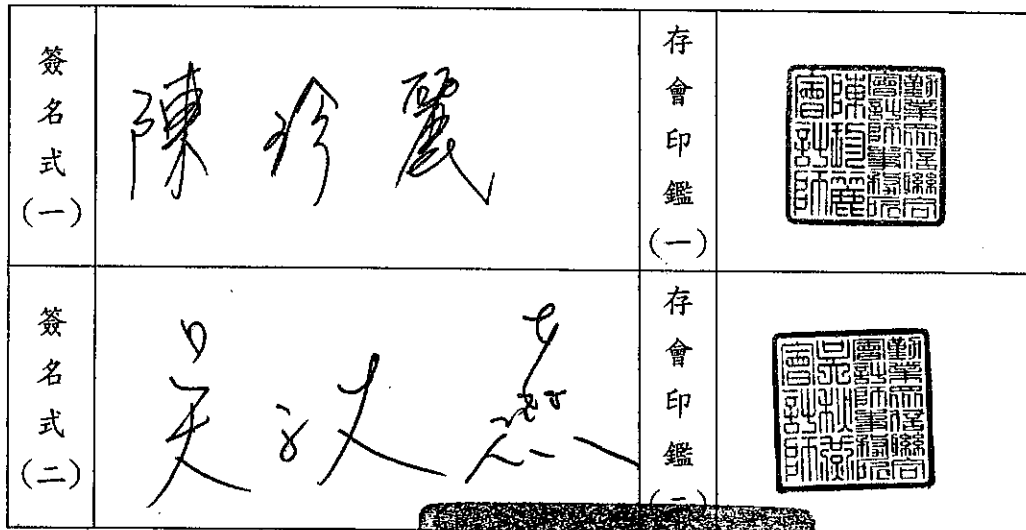 簽名式(一)
陳珍麗
存會印鑑(一)
勤業眾信聯合
會計師事務所
陳珍麗
會計師
簽名式(二)
吳
存會印鑑
勤業眾信聯合
會計師事務所
吳秋燕
會計師